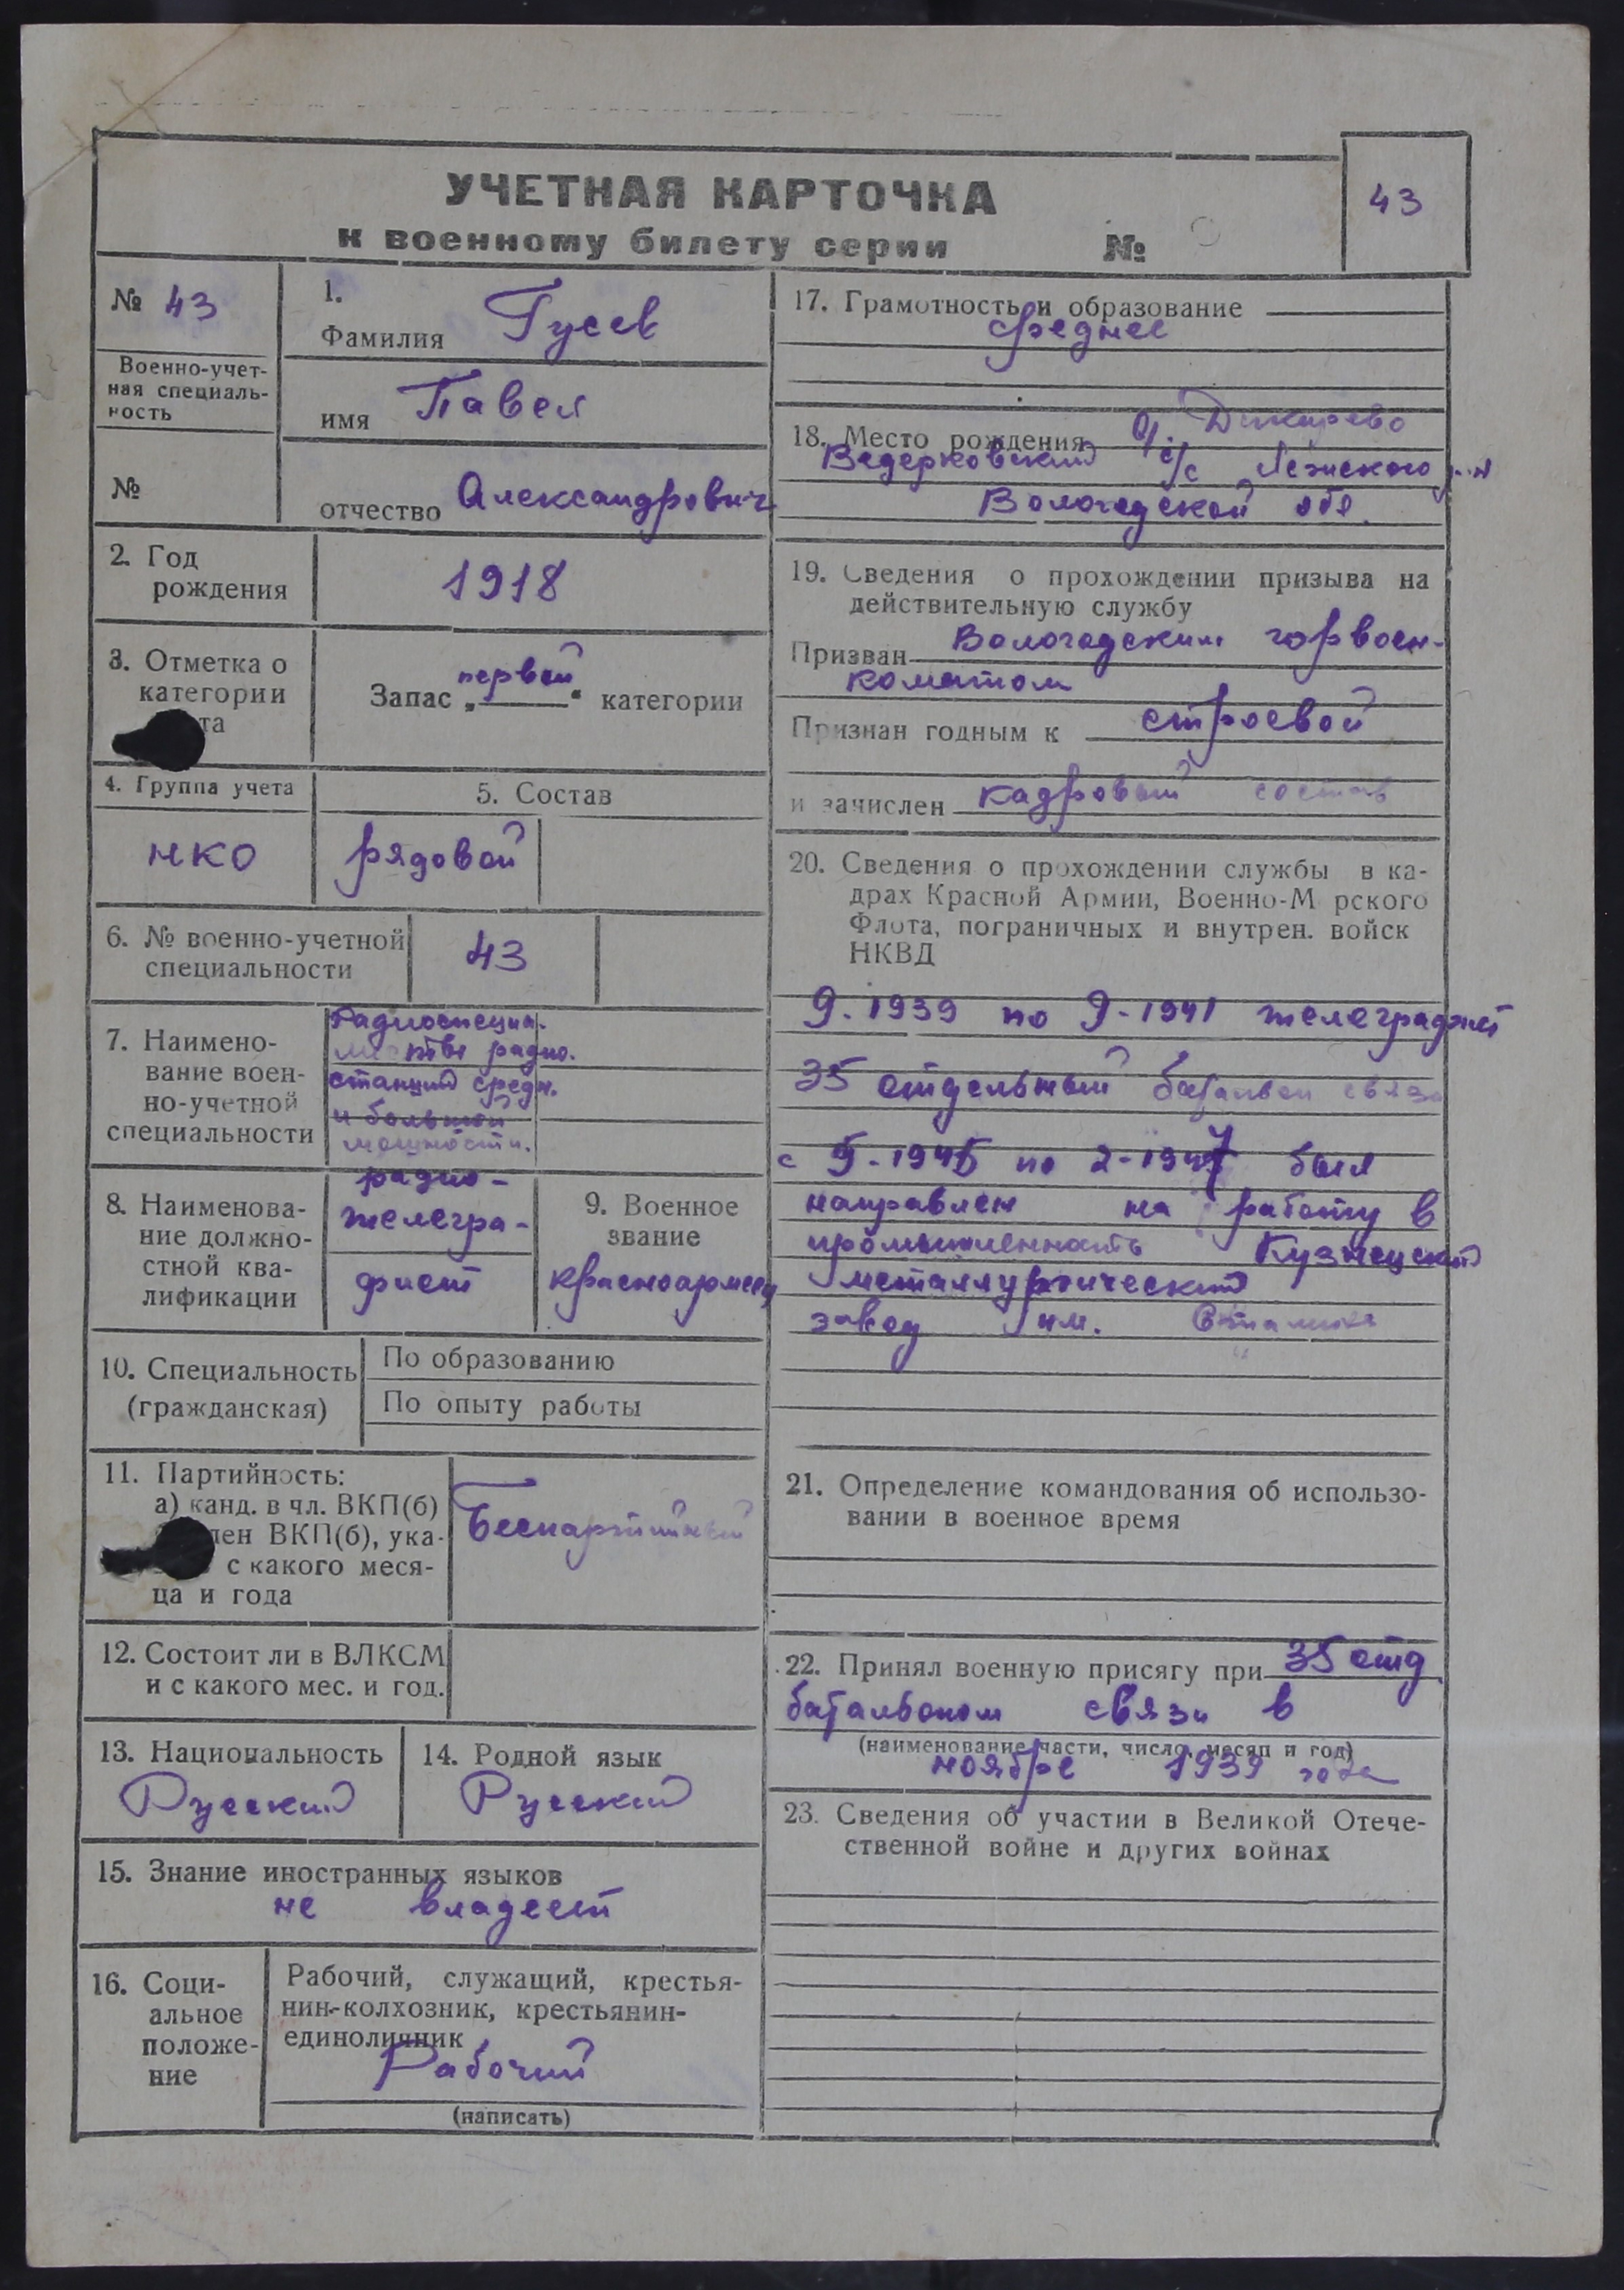 УЧЕТНАЯ КАРТОЧКА
к военному билету серии №
43
№ 43
Военно-учет-
ная специаль-
ность
№
1.
Фамилия Гусев
имя Павел
отчество Александрович
2. Год
рождения
1918
3. Отметка о
категории
та
Запас „первой“ категории
4. Группа учета
НКО
5. Состав
рядовой
6. № военно-учетной
специальности
43
7. Наимено-
вание воен-
но-учетной
специальности
Радиоспециа-
листы радио-
станций средн.
и большой
мощности.
8. Наименова-
ние должно-
стной ква-
лификации
радио-
телегра-
фист
9. Военное
звание
красноармеец
10. Специальность
(гражданская)
По образованию
По опыту работы
11. Партийность:
а) канд. в чл. ВКП(б)
лен ВКП(б), ука-
с какого меся-
ца и года
Беспартийный
12. Состоит ли в ВЛКСМ
и с какого мес. и год.
13. Национальность
Русский
14. Родной язык
Русский
15. Знание иностранных языков
не владеет
16. Соци-
альное
положе-
ние
Рабочий, служащий, крестья-
нин-колхозник, крестьянин-
единоличник
Рабочий
(написать)
17. Грамотность и образование
среднее
18. Место рождения д.
Ведерковский с/с Лежского р-н
Вологодской обл.
19. Сведения о прохождении призыва на
действительную службу
Призван Вологодским горвоен-
коматом
Признан годным к строевой
и зачислен кадровый состав
20. Сведения о прохождении службы в ка-
драх Красной Армии, Военно-М рского
Флота, пограничных и внутрен. войск
НКВД
9-1939 по 9-1941 телеграфист
35 отдельный батальон связи
с 5-1945 по 2-1947 был
направлен на работу в
промышленность Кузнецкий
металлургический
завод им. Сталина
21. Определение командования об использо-
вании в военное время
22. Принял военную присягу при 35 отд
батальоном связи в
(наименование части, число, месяц и год)
ноябре 1939 года
23. Сведения об участии в Великой Отече-
ственной войне и других войнах